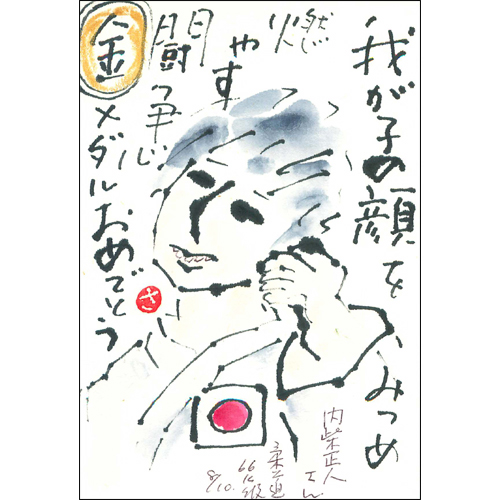 我が子の顔をみつめ
燃やす
闘争心
金メダルおめでとう
さ
内柴正人さん
柔道
66K級
8/10